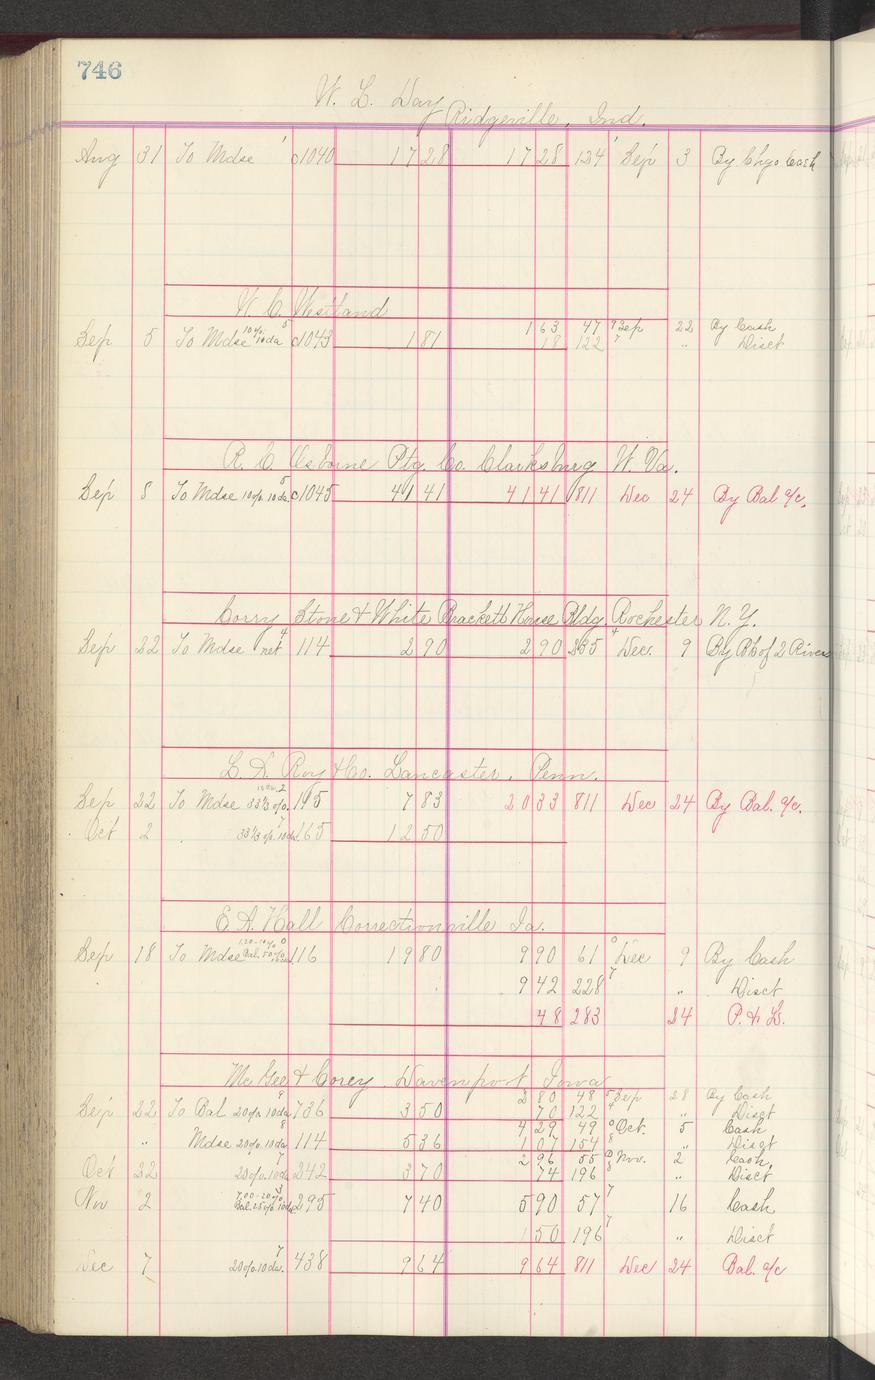 746
W. L. Day
Ridgeville, Ind.
Aug 31 To Mdse c1040 17 28 17 28 124 Sep 3 By Chgo Cash
W. C. Westland
Sep 5 To Mdse 10% 10 da 5 c1043 1 81 1 63 47 9 Sep 22 By Cash
18 122 7 " Disct
R. C. Osborne Ptg. Co. Clarksburg W. Va.
Sep 8 To Mdse 10% 10 da. 5 c1045 41 41 41 41 811 Dec 24 By Bal a/c,
Corry Stone & White Brackett House Bldg. Rochester N. Y.
Sep 22 To Mdse net 4 114 2 90 2 90 4 Dec. 9 By of 2 Rivers
Roy & Co. Lancaster, Penn.
Sep 22 To Mdse 33⅓ % 2 115 7 83 20 33 811 Dec 24 By Bal. a/c.
Oct 2 33⅓ % 10 da. 7 165 12 50
E. A. Hall Correctionville Ia.
Sep 18 To Mdse 116 19 80 9 90 61 0 Dec 9 By Cash
9 42 228 7 " Disct
48 283 24 P. & L.
McGee & Corey Davenport Iowa
2 80 48 5 Sep 28 By Cash
Sep 22 To Bal 20% 10 da 9 736 3 50 70 122 4 " Disct
4 29 49 0 Oct. 5 Cash
" Mdse 20% 10 da 8 114 5 36 1 07 154 8 " Disct
2 96 55 0 Nov. 2 Cash,
Oct 22 20% 10 da 7 242 3 70 74 196 8 " Disct
Nov 2 7.00-20% Bal. 25% 10 da 3 295 7 40 5 90 57 7 16 Cash
1 50 196 7 " Disct
Dec 7 20% 10 da. 7 438 9 64 9 64 811 Dec 24 Bal. a/c